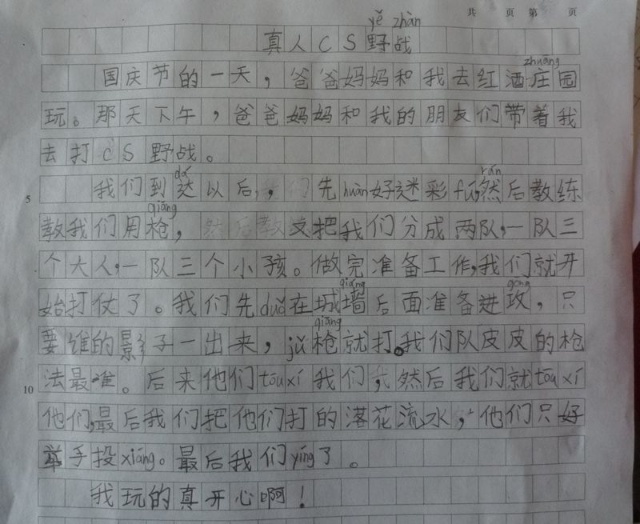 共 页 第 页
yě zhàn
真人CS野战
zhuāng
国庆节的一天，爸爸妈妈和我去红酒庄园
玩。那天下午，爸爸妈妈和我的朋友们带着我
去打CS野战。
dá rán
5 我们到达以后，先huàn好迷彩fú，然后教练
qiāng
教我们用枪，又把我们分成两队，一队三
个大人，一队三个小孩。做完准备工作，我们就开
qiáng gōng
始打仗了。我们先duǒ在城墙后面准备进攻，只
qiāng
要谁的影子一出来，jǔ枪就打。我们队皮皮的枪
10 法最准。后来他们tōuxí我们，然后我们就tōuxí
他们，最后我们把他们打的落花流水，他们只好
举手投xiáng。最后我们yíng了。
我玩的真开心啊！